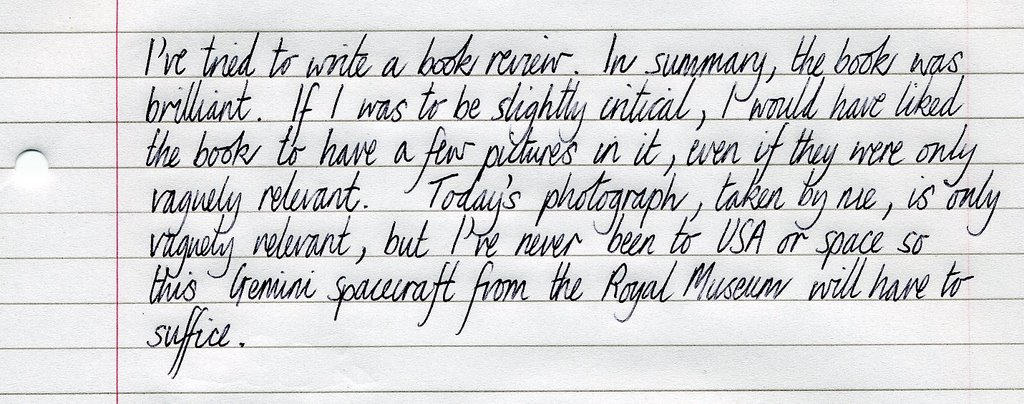 I've tried to write a book review. In summary, the book was
brilliant. If I was to be slightly critical, I would have liked
the book to have a few pictures in it, even if they were only
vaguely relevant. Today's photograph, taken by me, is only
vaguely relevant, but I've never been to USA or space so
this Gemini spacecraft from the Royal Museum will have to
suffice.